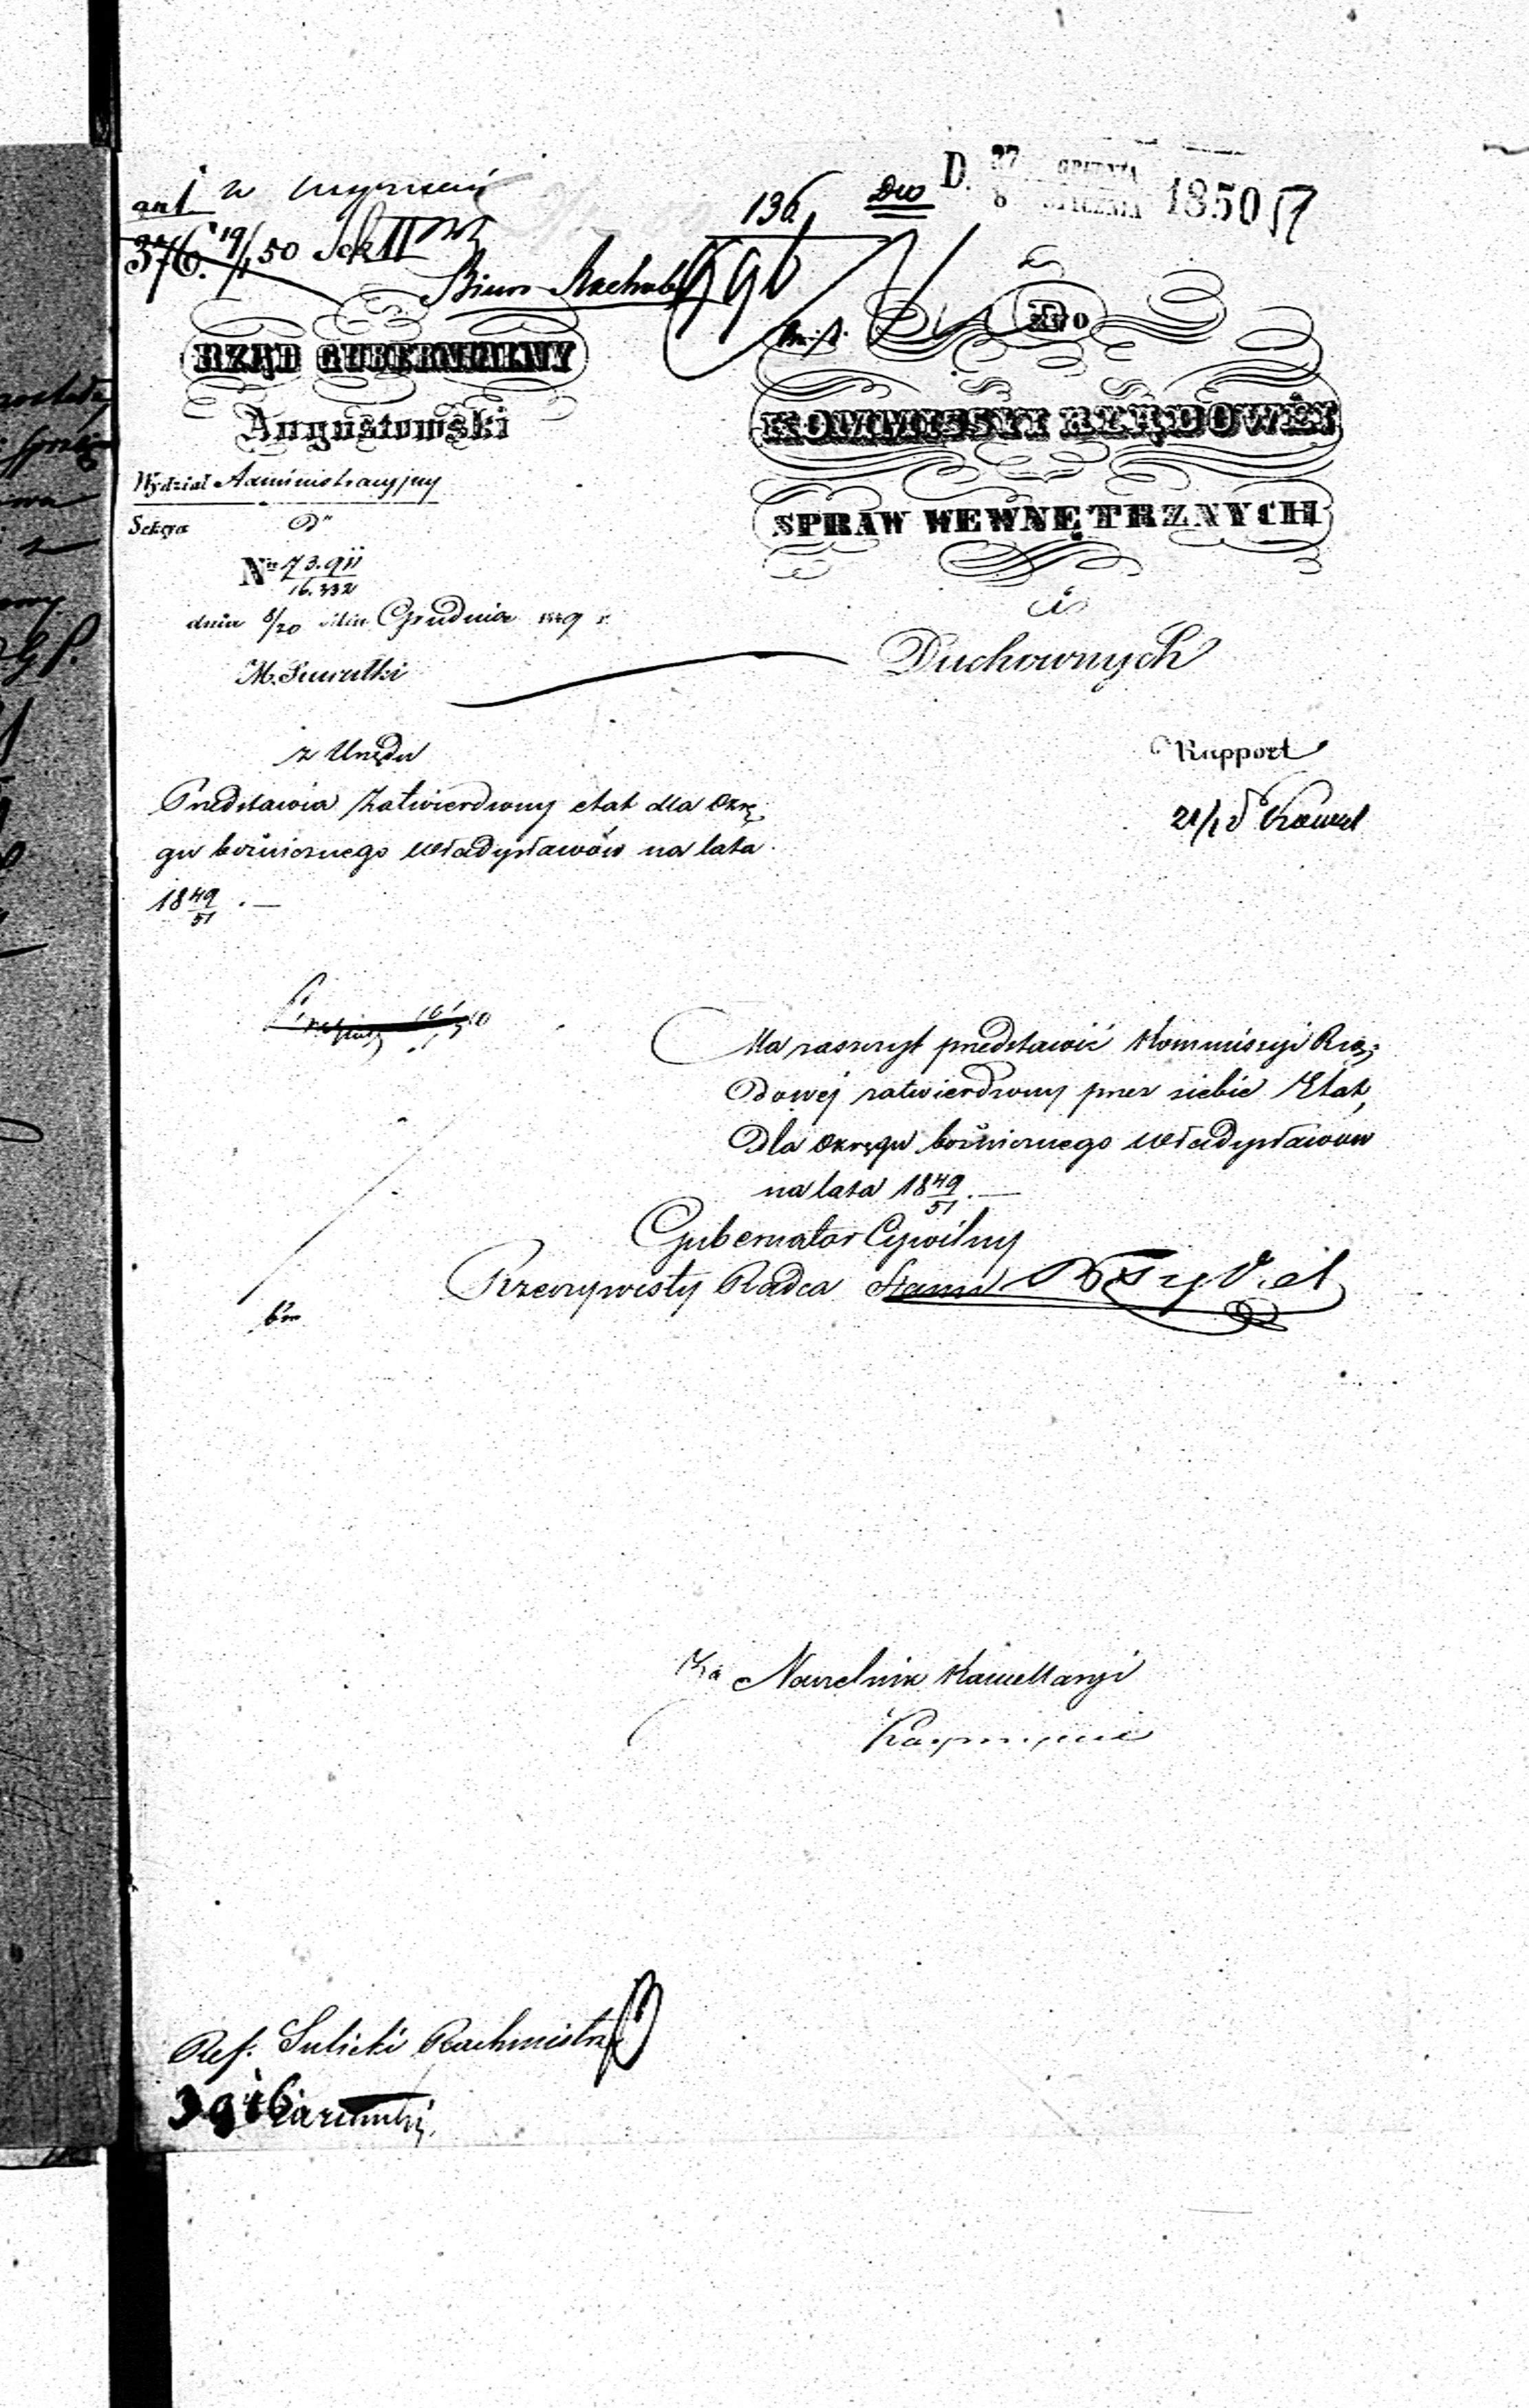 136
Dw
D. 27 GRUDNIA
8 STYCZNIA 1850
376. 19/1 50 Sek II
Biuro Rachub
RZĄD GUBERNIALNY
Augustowski
Wydział Administracyjny
Sekcya
Nr 73.911
16.332
dnia 8/20 Grudnia 1849 r.
M. Suwałki
Do
KOMMISSYI RZĄDOWÉY
SPRAW WEWNĘTRZNYCH
i
Duchownych
z Urzędu
Przedstawia zatwierdzony etat dla Okrę
gu bożnicznego Władysławów na lata
18 49/51 . —
Rapport
21/1
Ma zaszczyt przedstawić Kommissyi Rzą
dowej zatwierdzony przez siebie Etat,
dla Okręgu bożnicznego Władysławów
na lata 18 49/51 . —
Gubernator Cywilny
Rzeczywisty Radca Stanu
Za Naczelnik Kancellaryi
Ref. Sulicki Rachmistrz